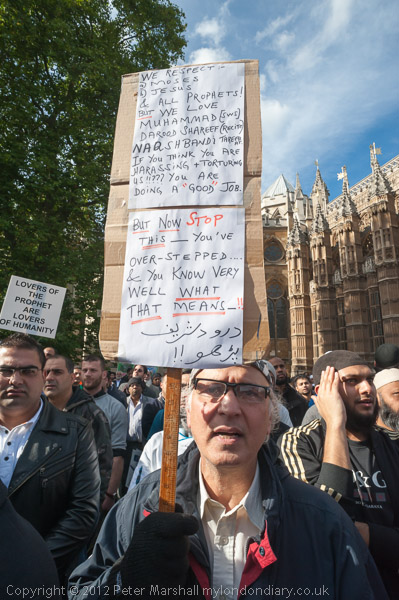 WE RESPECT:-
MOSES
JESUS
& ALL PROPHETS!
BUT WE LOVE
MUHAMMAD [SWS]
DAROOD SHAREEF (RECITE)
NAQSHBANDI
IF YOU THINK YOU ARE
HARASSING + TORTURING
US!!??? YOU ARE
DOING A "GOOD" JOB.
BUT NOW STOP
THIS — YOU'VE
OVER-STEPPED....
& YOU KNOW VERY
WELL WHAT
THAT MEANS_!!
درود شریف
پڑھو!!
LOVERS OF
THE PROPHET
ARE
LOVERS OF
HUMANITY
D&G
Copyright © 2012 Peter Marshall mylondondiary.co.uk